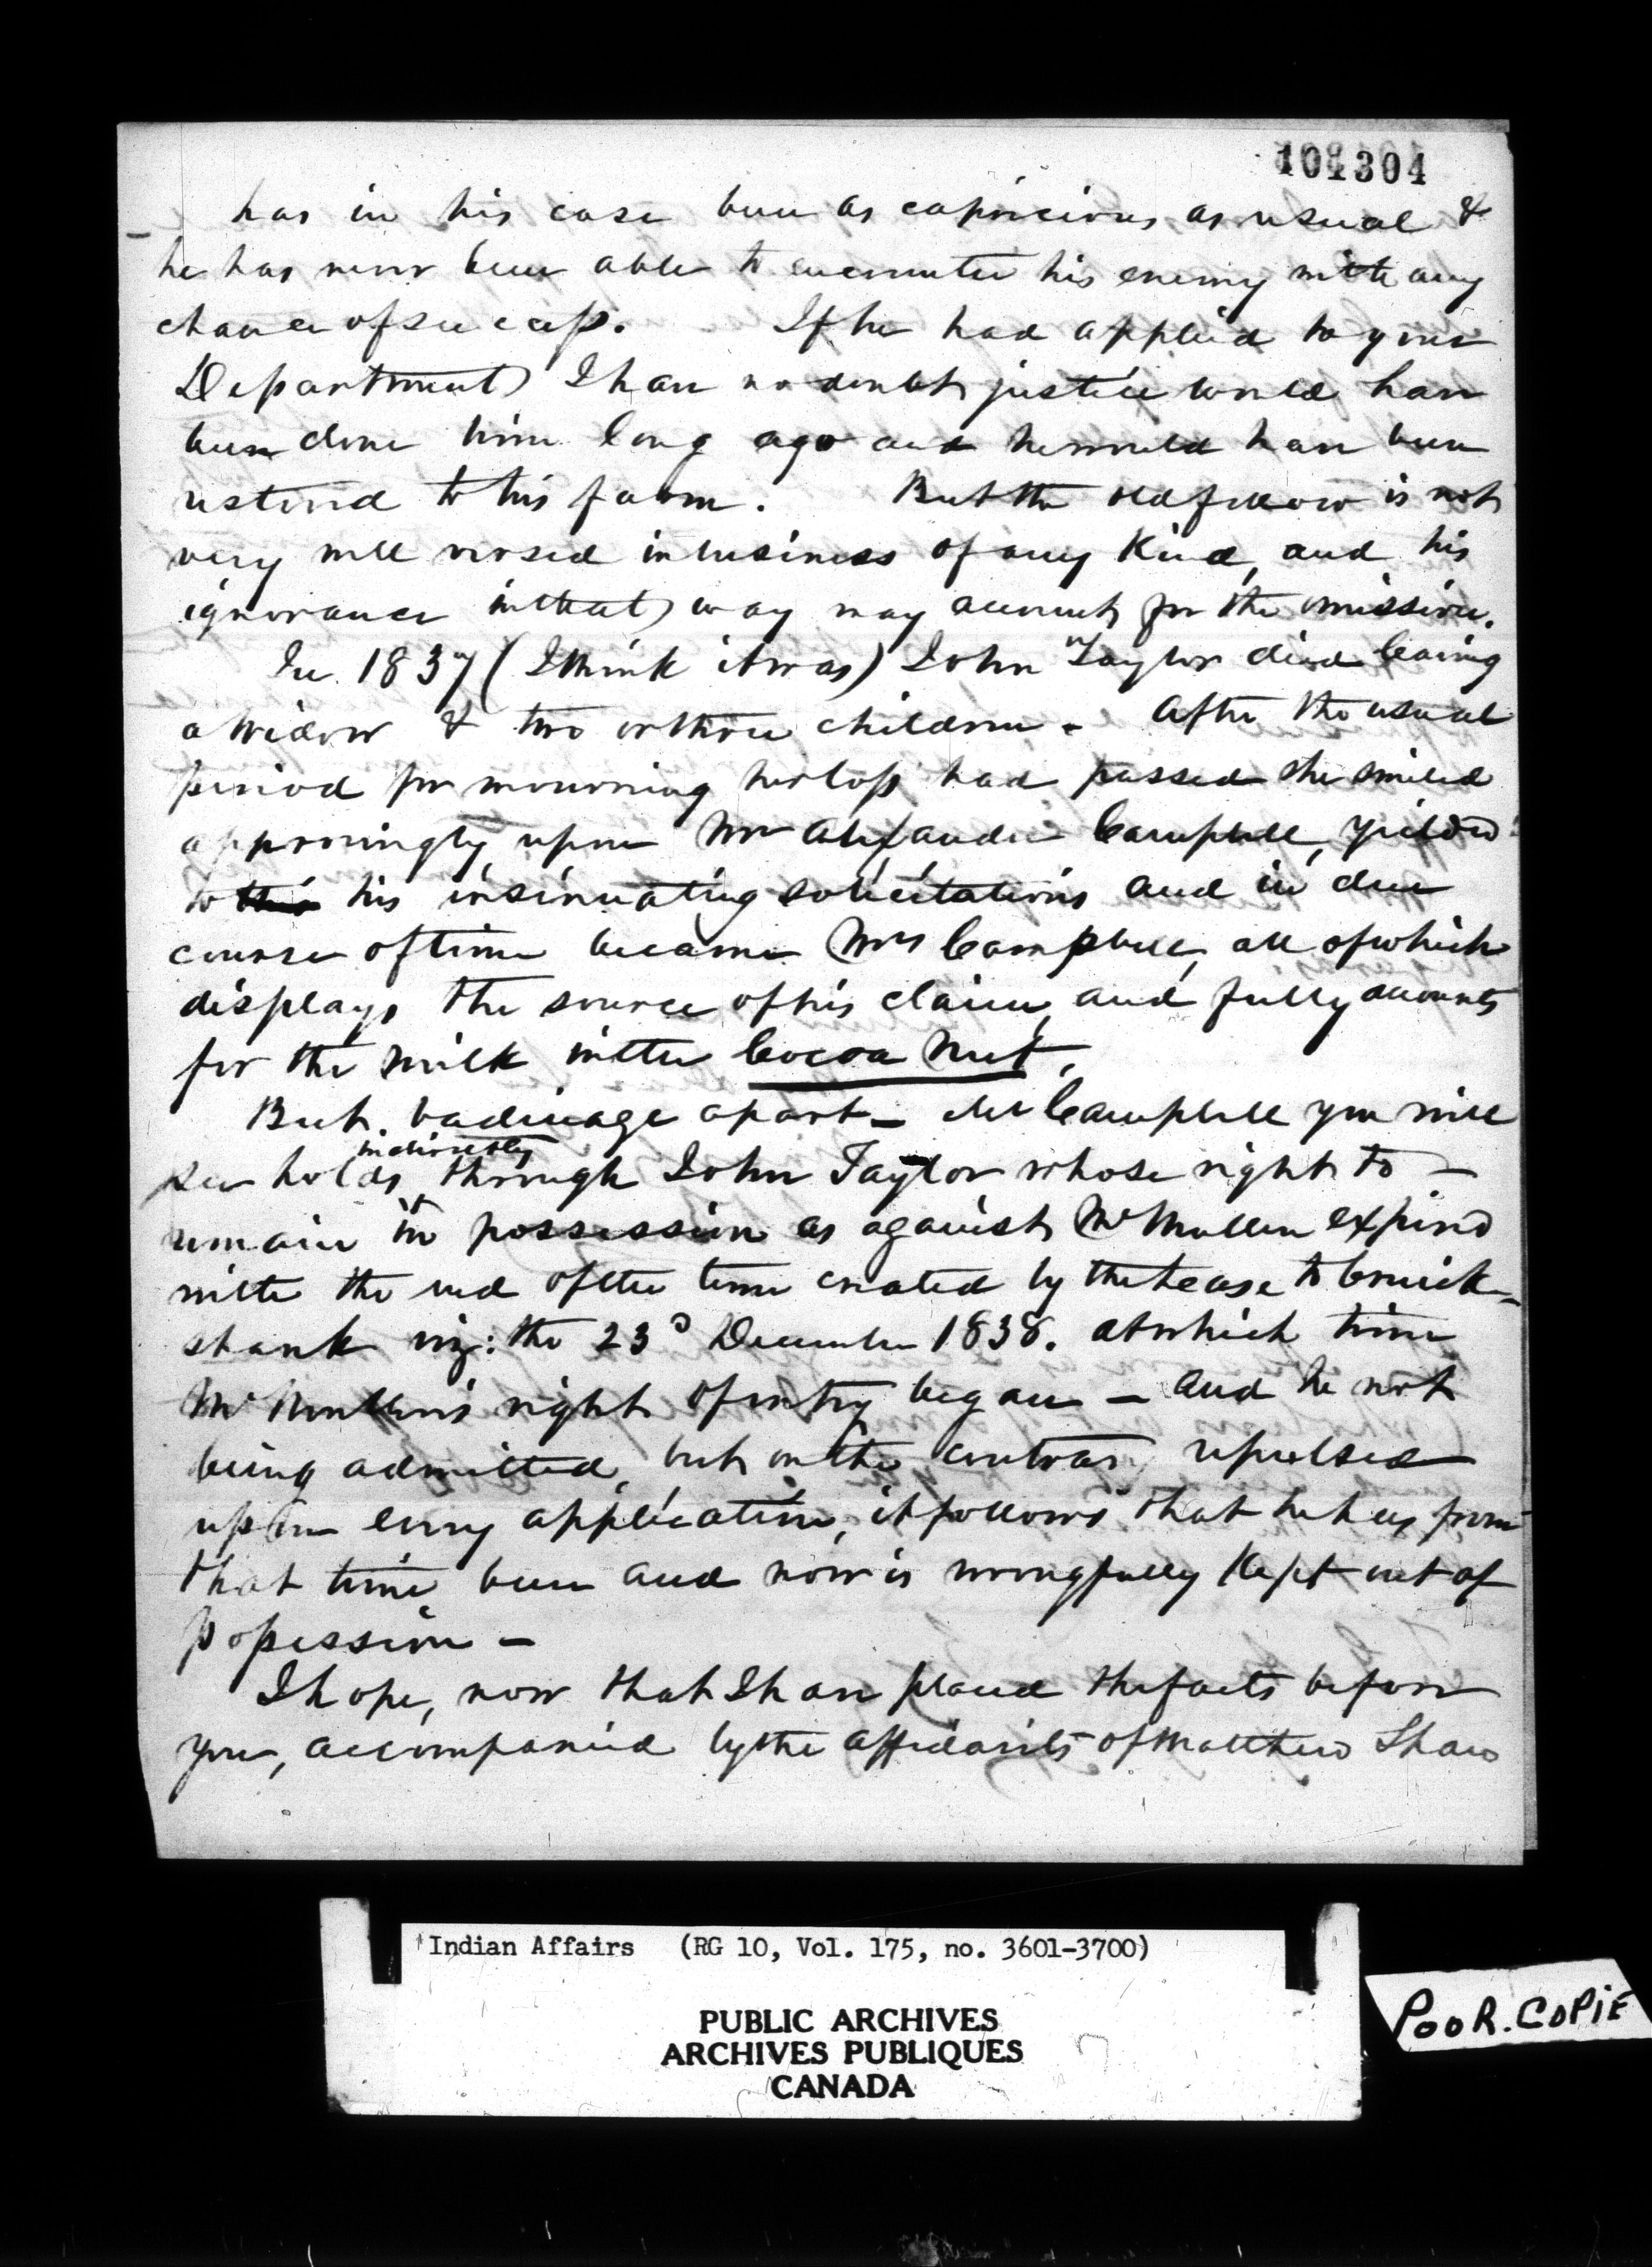 104304
has in his case been as capricious as usual &
he has never been able to encounter his enemy with any
chance of success. If he had applied to your
Department I have no doubt justice would have
been done him long ago and he would have been
restored to his farm. But the old fellow is not
very well versed in business of any Kind, and his
ignorance in that way may account for the omission.
In 1837 (I think it was) John Taylor died leaving
a widow & two or three children - After the usual
period for mourning her loss had passed she smiled
approvingly upon Mr Alexander Campbell, yielded
to this his insinuating solicitations and in due
course of time became Mrs Campbell, all of which
displays the source of his claim, and fully accounts
for the milk in the Cocoa Nut.
But, badinage apart - Mr Campbell you will
indirectly
see holds through John Taylor whose right to -
remain in possession as against McMullen expired
with the end of the term created by the Lease to Cruick-
shank viz: the 23d December 1838. at which time
McMullen's right of entry began - and he not
being admitted, but on the contrary repulsed
upon every application, it follows that he has from
that time been and now is wrongfully Kept out of
possession -
I hope, now that I have placed the facts before
you, accompanied by the affidavits of Matthew Shaw
Indian Affairs (RG 10, Vol. 175, no. 3601-3700)
PUBLIC ARCHIVES
ARCHIVES PUBLIQUES
CANADA
POOR. COPIE